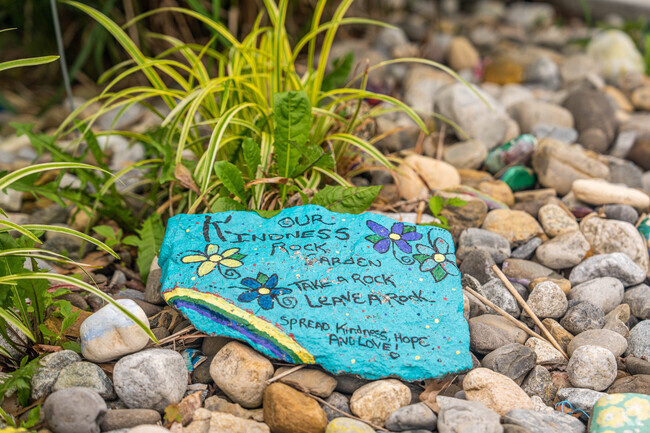 OUR
KINDNESS
ROCK
GARDEN
TAKE A ROCK
LEAVE A ROCK
SPREAD KINDNESS, HOPE
AND LOVE!